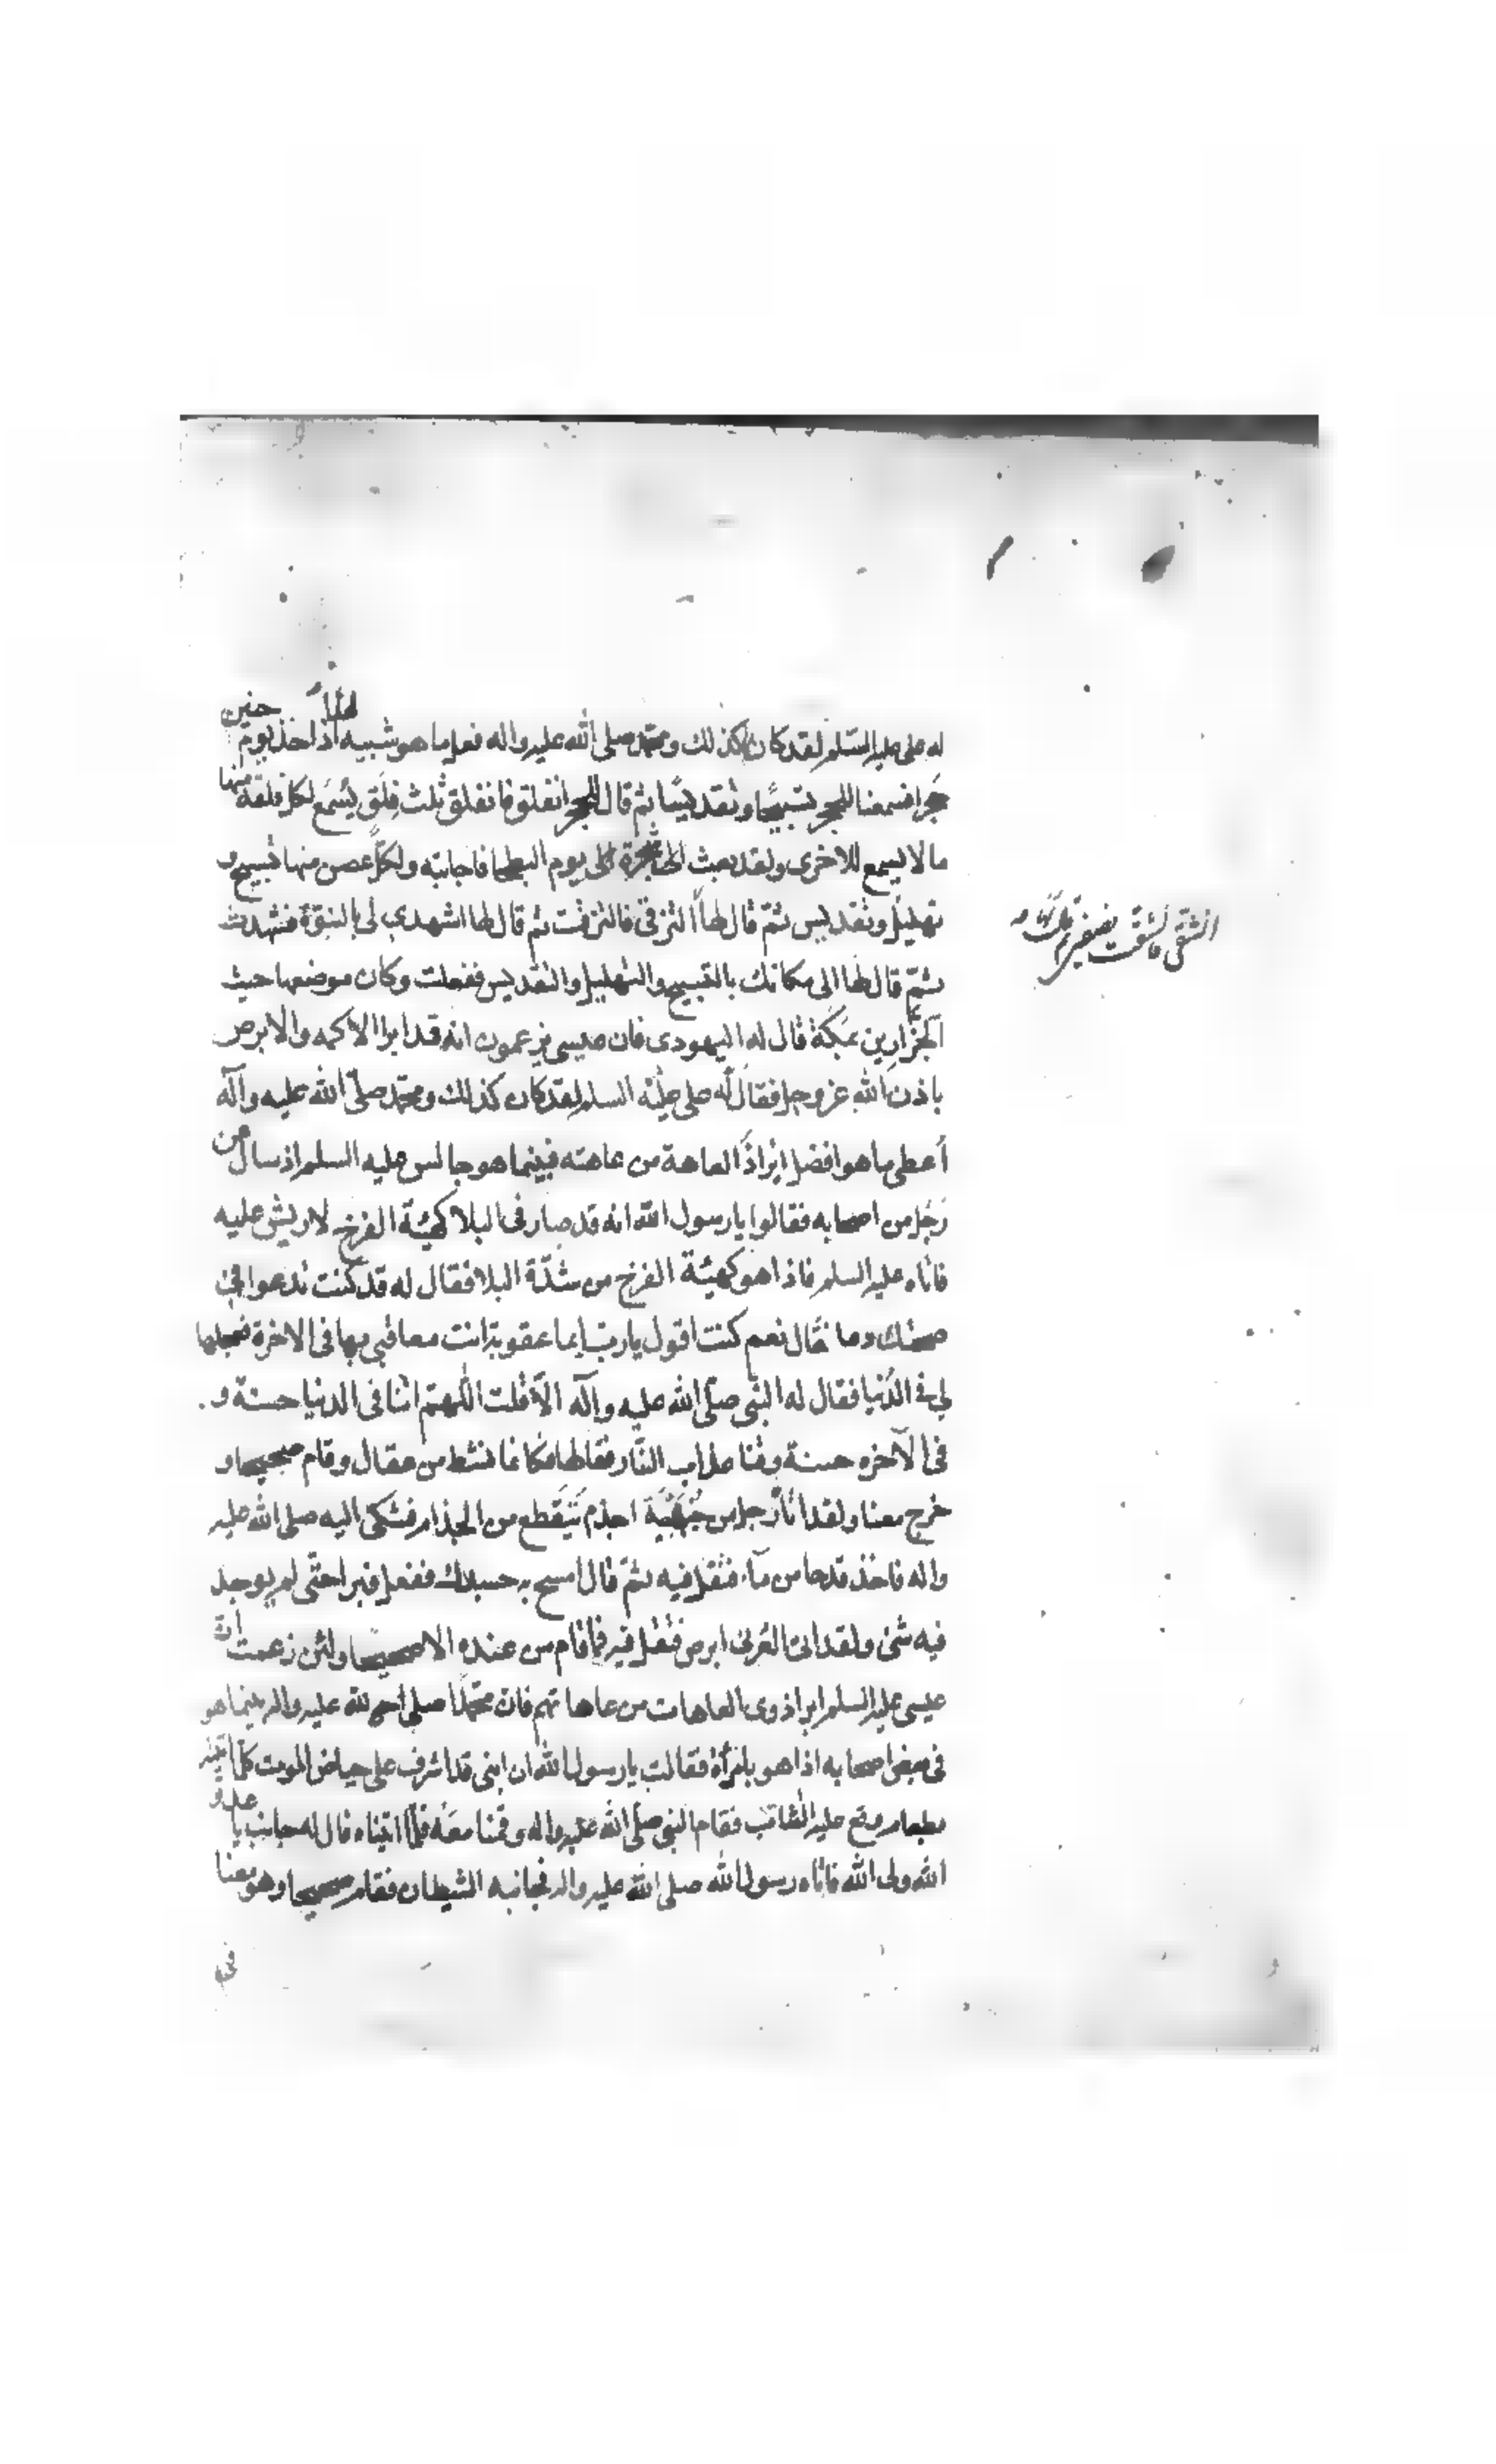 له علي عليه السلم لقد كان كذلك ومحمد صلى الله عليه واله فعل ما هو شبيه لهذا اذ اخذ يوم حنين
حجرا فسمعنا للحجر تسبيحا وتقديسا ثم قال للحجر انفلق فانفلق ثلث فلق يسمع لكل فلقة منها
ما لا يسمع للاخرى ولقد بعث الى شجرة يوم البطحا فاجابته ولكل غصن منها تسبيح و
تهليل وتقديس ثم قال لها
انشقي فانشقت بنصفين ثم قال لها
التزقي فالتزقت ثم قال لها اشهدي لي بالنبوة فشهدت
ثم قال لها الى مكانك بالتسبيح والتهليل والتقديس ففعلت وكان موضعها حيث
الجزارين بمكة قال له اليهودى فان عيسى يزعمون انه قد ابرا الاكمه والابرص
باذن الله عز وجل فقال له علي عليه السلم لقد كان كذلك ومحمد صلى الله عليه وآله
أعطى ما هو افضل ابرا ذا العاهة من عاهته فبينما هو جالس عليه السلم اذ سال عن
رجل من اصحابه فقالوا يا رسول الله انه قد صار فى البلا كهيئة الفرخ لا ريش عليه
فاتاه عليه السلم فاذا هو كهيئة الفرخ من شدة البلا فقال له قد كنت تدعوا في
صحتك دعا قال نعم كنت اقول يا رب ايما عقوبة انت معاقبي بها فى الاخرة فعجلها
لي في الدنيا فقال له النبي صلى الله عليه وآله الا قلت اللهم اتنا فى الدنيا حسنة و
فى الآخره حسنة وقنا عذاب النار فقالها فكانما نشط من عقال وقام صحيحا و
خرج معنا ولقد اتاه رجل من جهينة اجذم يتقطع من الجذام فشكى اليه صلى الله عليه
واله فاخذ قدحا من مآء فتفل فيه ثم قال امسح به جسدك ففعل فبرا حتى لم يوجد
فيه شئ ولقد اتى العربى ابرص فتفل فيه فما قام من عنده الا صحيحا ولئن زعمت ان
عيسى عليه السلم ابرا ذوى العاهات من عاهاتهم فان محمدا صلى الله عليه واله بينما هو
فى بعض اصحابه اذا هو بامرأة فقالت يا رسول الله ان ابنى قد اشرف على حياض الموت كلما اتيته
بطعام وقع عليه التثاؤب فقام النبى صلى الله عليه واله وقمنا معه فلما اتيناه قال له جانب يا عدو
الله ولى الله فاناه رسول الله صلى الله عليه واله فجانبه الشيطان فقام صحيحا وهو معنا
في